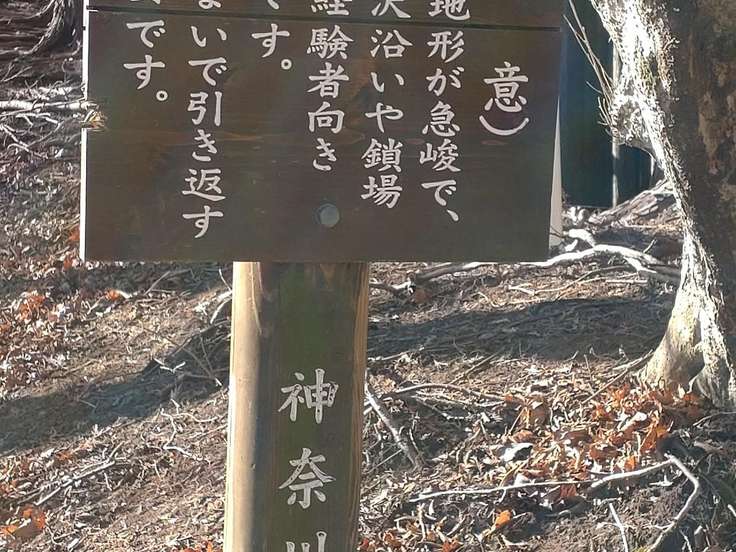 意）
地形が急峻で、
沢沿いや鎖場
経験者向き
です。
ないで引き返す
です。
神奈川